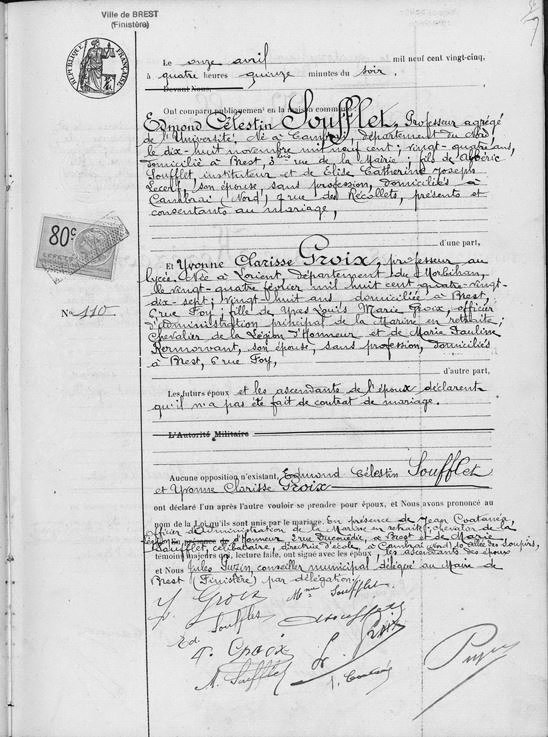 Ville de BREST
(Finistère)
RÉPUBLIQUE FRANÇAISE
Le onze avril mil neuf cent vingt-cinq,
à quatre heures quinze minutes du soir.
Devant Nous,
Ont comparu publiquement en la maison commune
Edmond Célestin Soufflet, Professeur agrégé
de l'Université, né à Cambrai, département du Nord,
le dix-huit novembre mil neuf cent; vingt-quatre ans,
domicilié à Brest, 3 bis rue de la Mairie; fils de
Soufflet instituteur et de Elise Catherine Joseph
Lecerf, son épouse, sans profession, domiciliés à
Cambrai (Nord) rue des Récollets, présents et
consentants au mariage,
d'une part,
Et Yvonne Clarisse Groix, professeur au
lycée née à Lorient, département du Morbihan,
le vingt-quatre février mil huit cent quatre-vingt-
dix-sept; vingt-huit ans domiciliée à Brest,
6 rue Foy, fille de Yves Louis Marie Groix, officier
d'administration principal de la Marine en retraite,
Chevalier de la Légion d'Honneur et de Marie Pauline
Kermorvant, son épouse, sans profession, domiciliés
à Brest, 6 rue Foy,
d'autre part,
80c
No 110
Les futurs époux et les ascendants de l'époux déclarent
qu'il n'a pas été fait de contrat de mariage.
L'Autorité Militaire
Aucune opposition n'existant, Edmond Célestin Soufflet
et Yvonne Clarisse Groix
ont déclaré l'un après l'autre vouloir se prendre pour époux, et Nous avons prononcé au
nom de la Loi qu'ils sont unis par le mariage. En présence de Jean
Officier d'administration de la Marine en retraite, chevalier de la
Légion d'Honneur 2 rue Ducouëdic, à Brest et de Marie
Soufflet, célibataire, directrice d'école, à Cambrai (Nord)
témoins majeurs qui, lecture faite, ont signé avec les époux les ascendants des époux
et Nous Jules conseiller municipal délégué au Maire de
Brest (Finistère) par délégation.
Y. Groix Mme Soufflet
Ed Soufflet
Groix
M. Soufflet